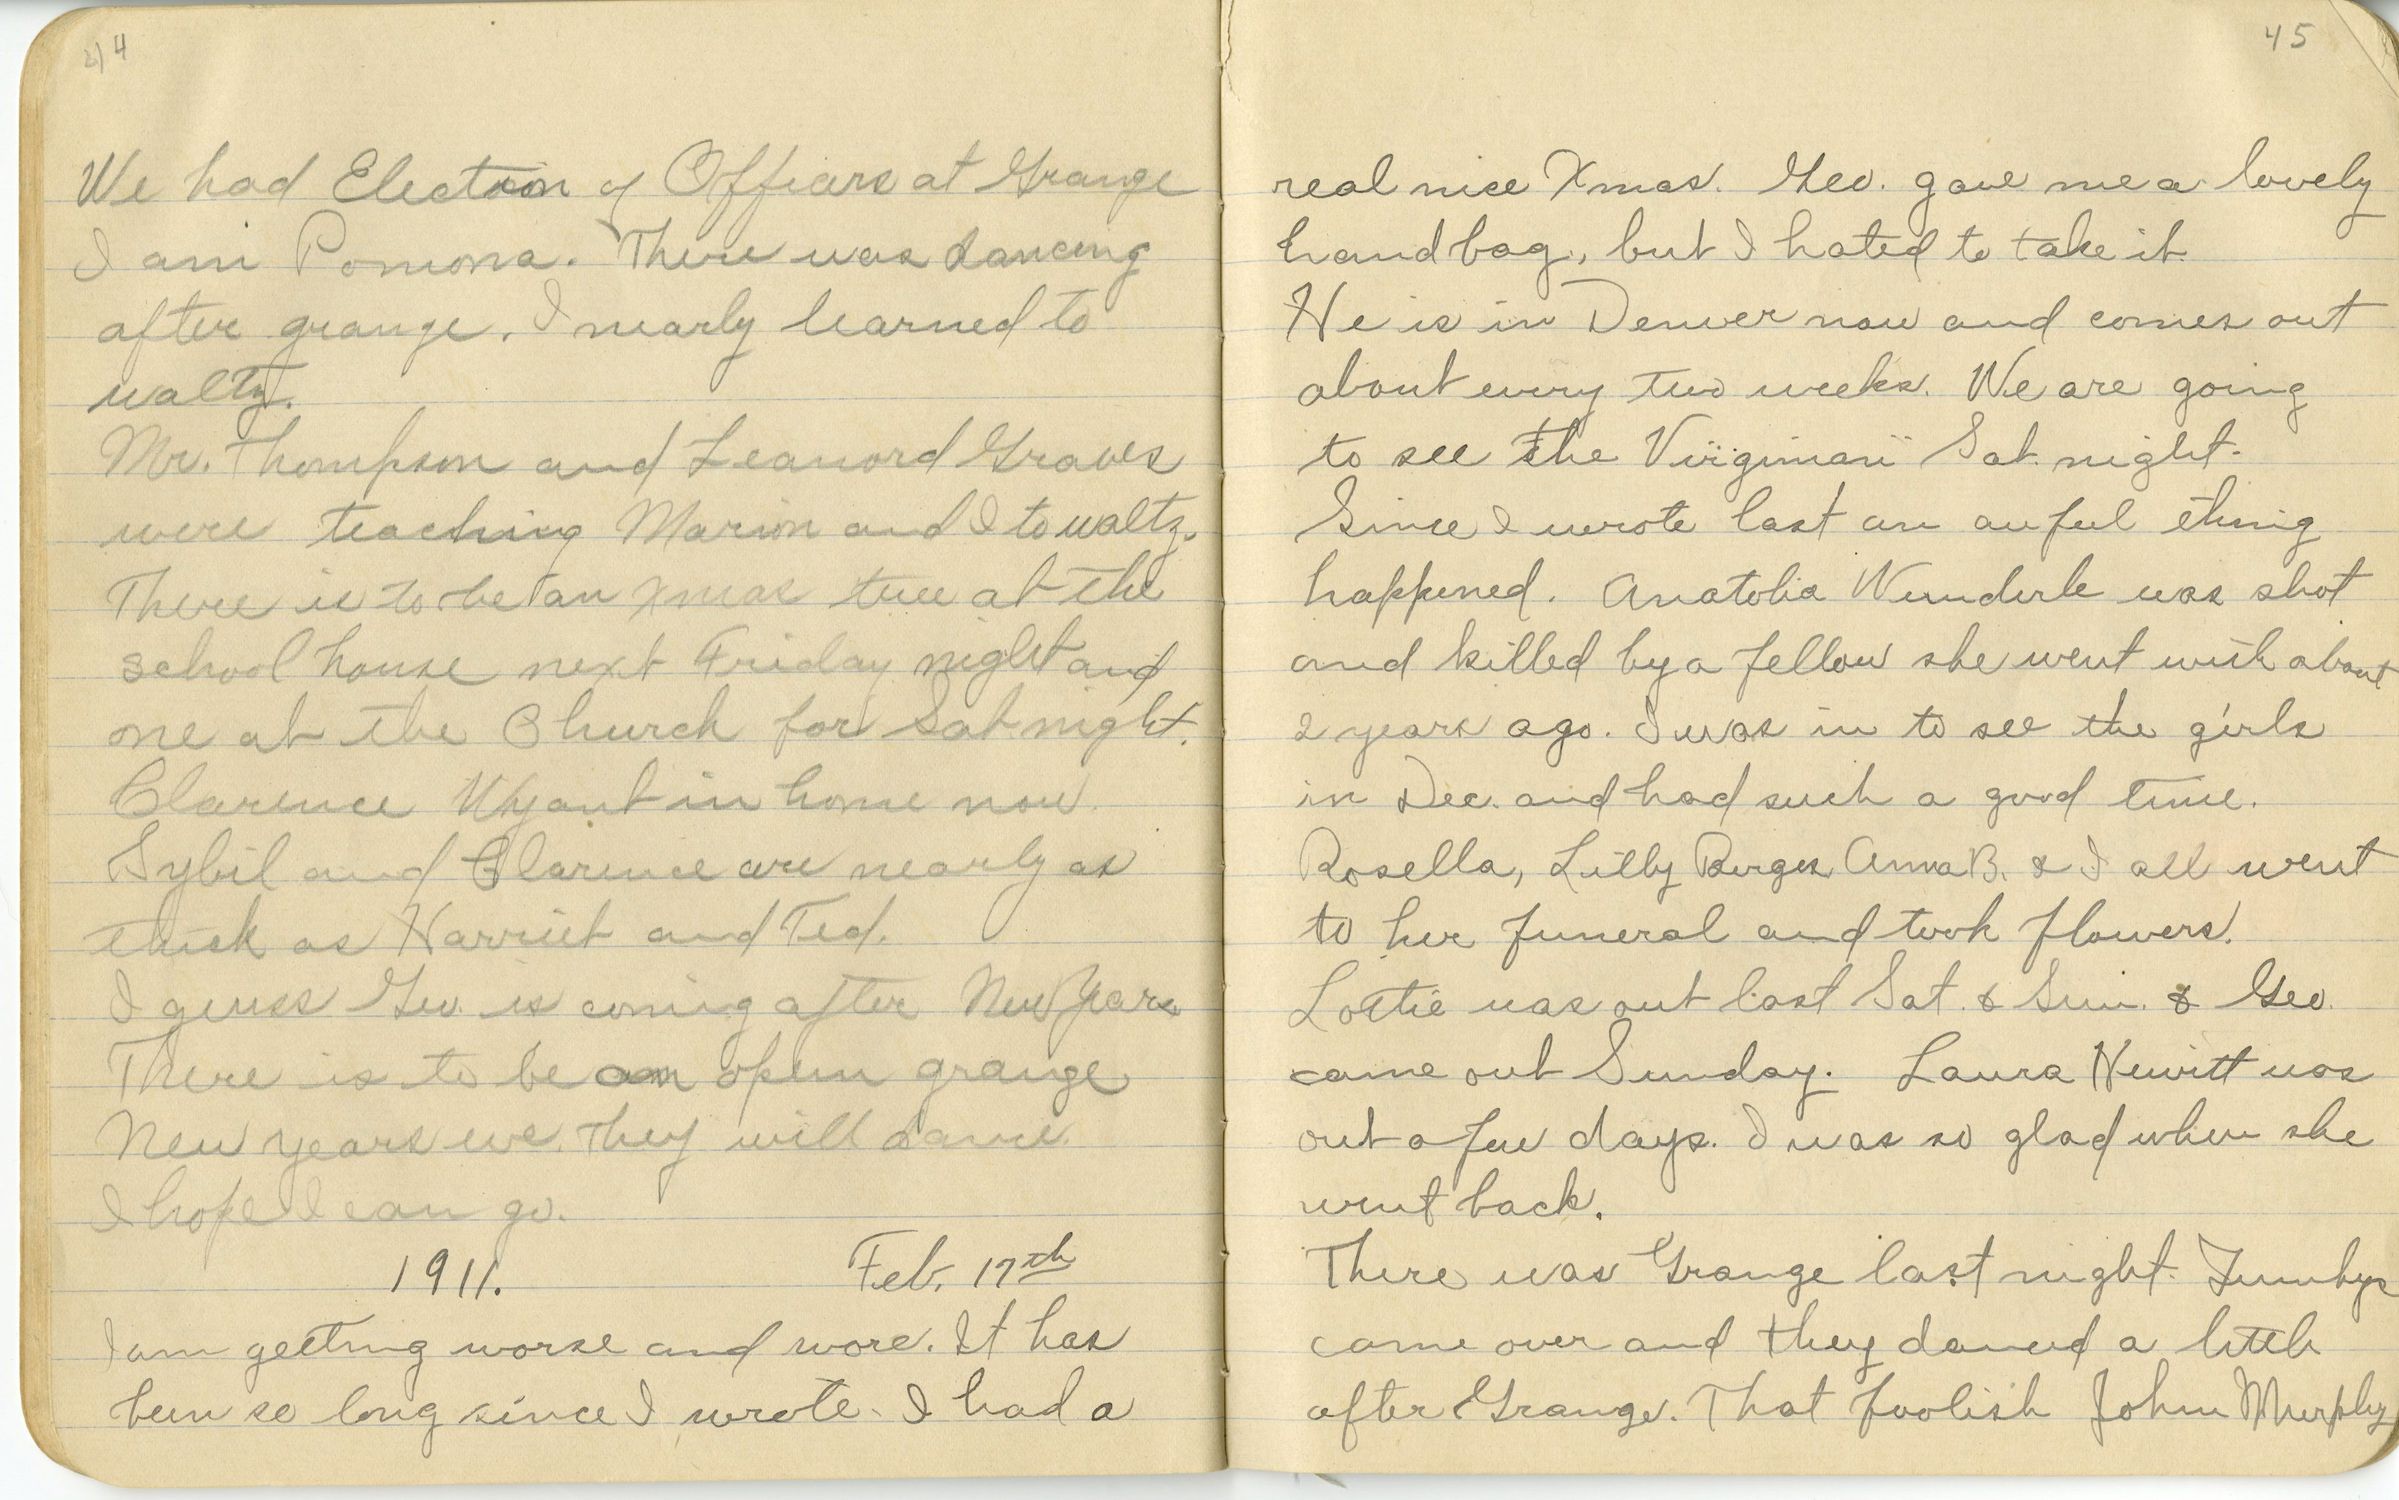 44
We had Election of Officers at Grange
I am Pomona. There was dancing
after grange. I nearly learned to
waltz.
Mr. Thompson and Leanord Graves
were teaching Marion and I to waltz.
There is to be an Xmas tree at the
school house next Friday night and
one at the Church for Sat night.
Clarence Wyant in home now.
Sybil and Clarence are nearly as
thick as Harriet and Ted.
I guess Geo. is coming after New Years
There is to be an open grange
New years eve. They will dance.
I hope I can go.
1911. Feb. 17th
I am getting worse and wore. It has
been so long since I wrote. I had a
45
real nice Xmas. Geo. gave me a lovely
handbag, but I hated to take it.
He is in Denver now and comes out
about every two weeks. We are going
to see the "Virginian" Sat. night.
Since I wrote last an awful thing
happened. Anatolia Wunderle was shot
and killed by a fellow she went with about
2 years ago. I was in to see the girls
in Dec. and had such a good time.
Rosella, Lilly Anna B. & I all went
to her funeral and took flowers.
Lottie was out last Sat. & Sun. & Geo.
came out Sunday. Laura Hewitt was
out a few days. I was so glad when she
went back.
There was Grange last night.
came over and they danced a little
after Grange. That foolish John Murphy